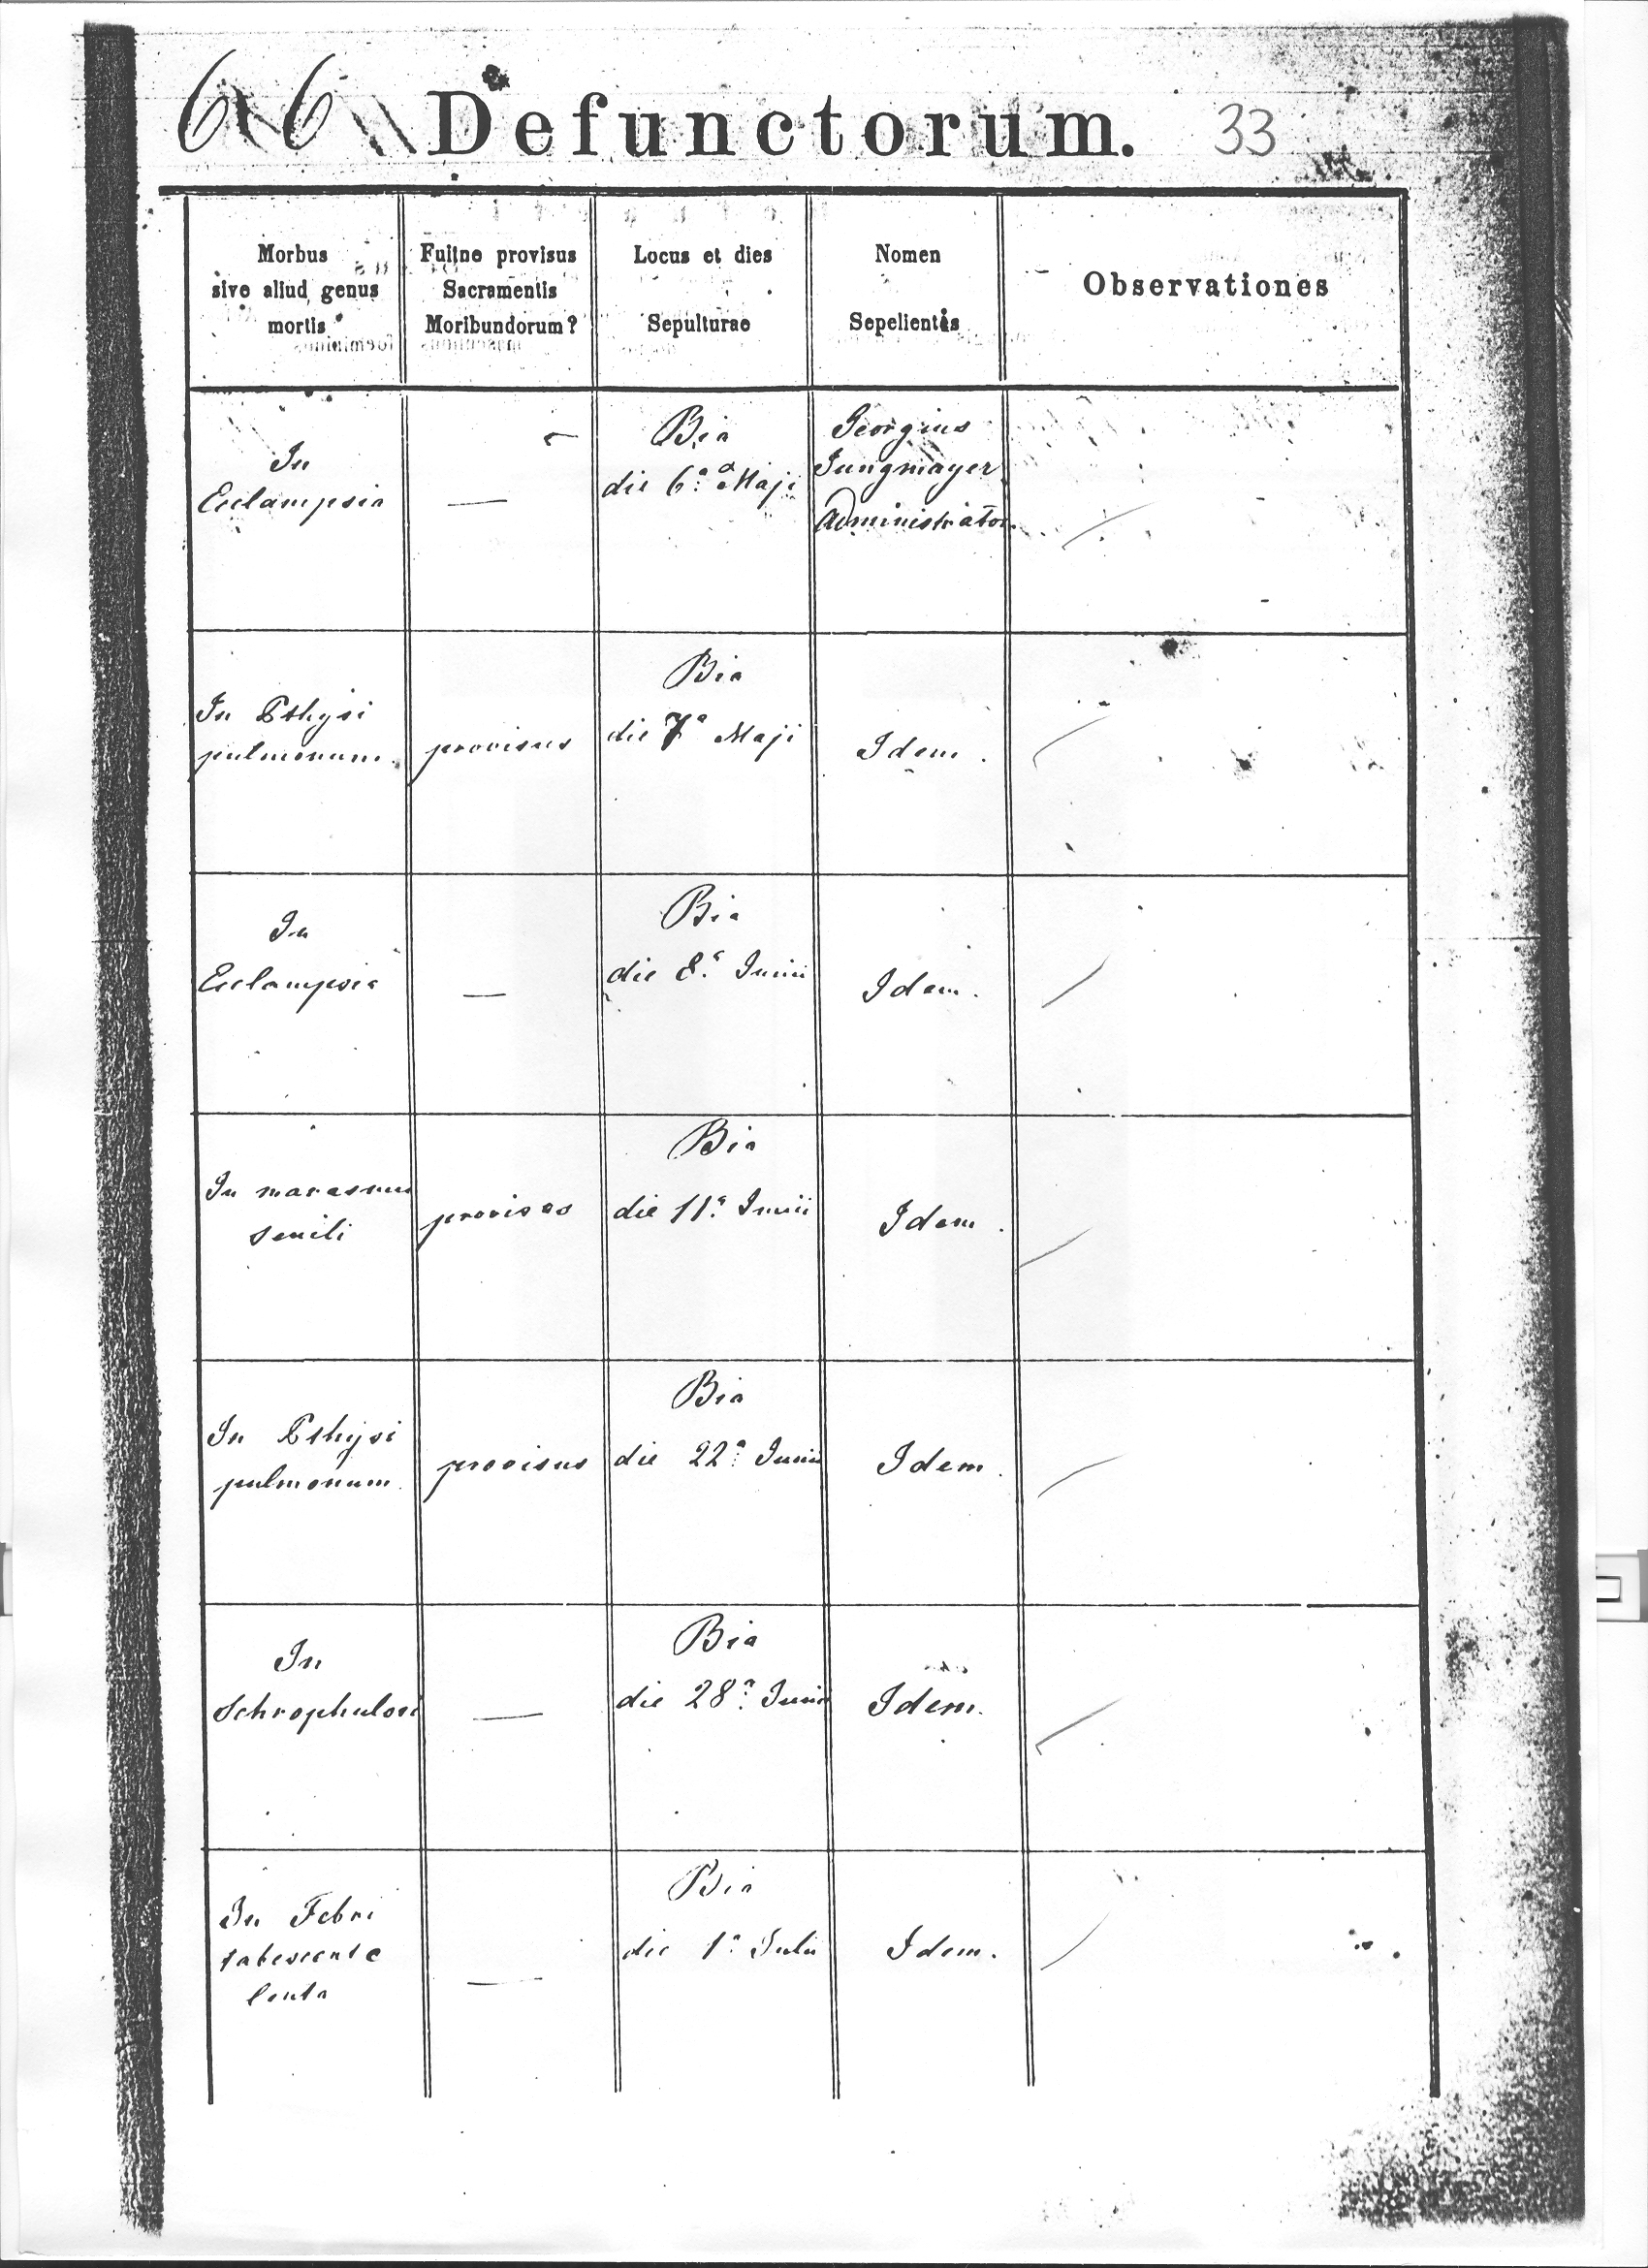 66 Defunctorum. 33
Morbus
sive aliud genus
mortis
Fuitne provisus
Sacramentis
Moribundorum?
Locus et dies
Sepulturae
Nomen
Sepelientis
Observationes
In
Eclampsia
—
Bia
die 6.a Maji
Georgius
Jungmayer
Administrator.
In Pthysi
pulmonum.
provisus
Bia
die 7a Maji
Idem.
In
Eclampsia
—
Bia
die 8.a Junii
Idem.
In marasmu
senili
provisus
Bia
die 11.a Junii
Idem.
In Pthysi
pulmonum.
provisus
Bia
die 22.a Junii
Idem.
In
Schrophulosi
—
Bia
die 28.a Junii
Idem.
In Febri
tabescente
lenta
—
Bia
die 1.a Julii
Idem.